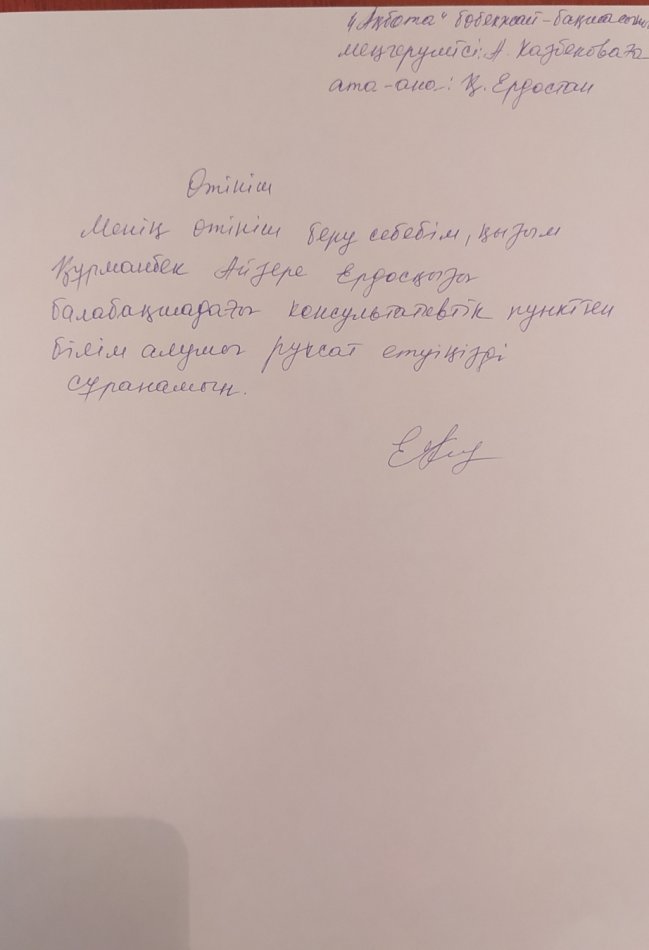 "Ақбота" бөбекжай-бақшасының
меңгерушісі: А. Казбековаға
ата-ана: Қ. Ердостан
Өтініш
Менің өтініш беру себебім, қызым
Құрманбек Айзере Ердосқызы
балабақшадағы консультативтік пунктген
білім алуына рұқсат етуіңізді
сұранамын.